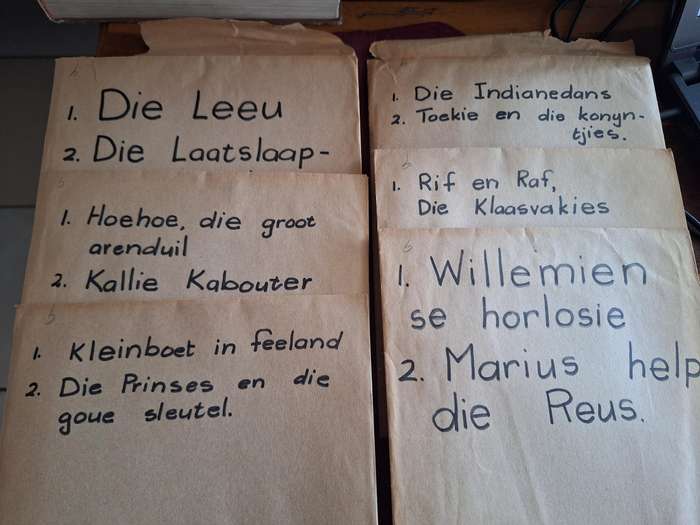 1. Die Leeu
2. Die Laatslaap-
1. Hoehoe, die groot
arenduil
2. Kallie Kabouter
1. Kleinboet in feeland
2. Die Prinses en die
goue sleutel.
1. Die Indianedans
2. Toekie en die konyn-
tjies.
1. Rif en Raf,
Die Klaasvakies
1. Willemien
se horlosie
2. Marius help
die Reus.